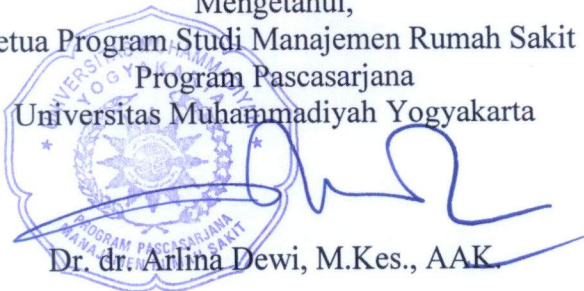 Mengetahui,
etua Program Studi Manajemen Rumah Sakit
Program Pascasarjana
Universitas Muhammadiyah Yogyakarta
UNIVERSITAS MUHAMMADIYAH
YOGYAKARTA
PROGRAM PASCASARJANA
MANAJEMEN RUMAH SAKIT
Dr. dr. Arlina Dewi, M.Kes., AAK.